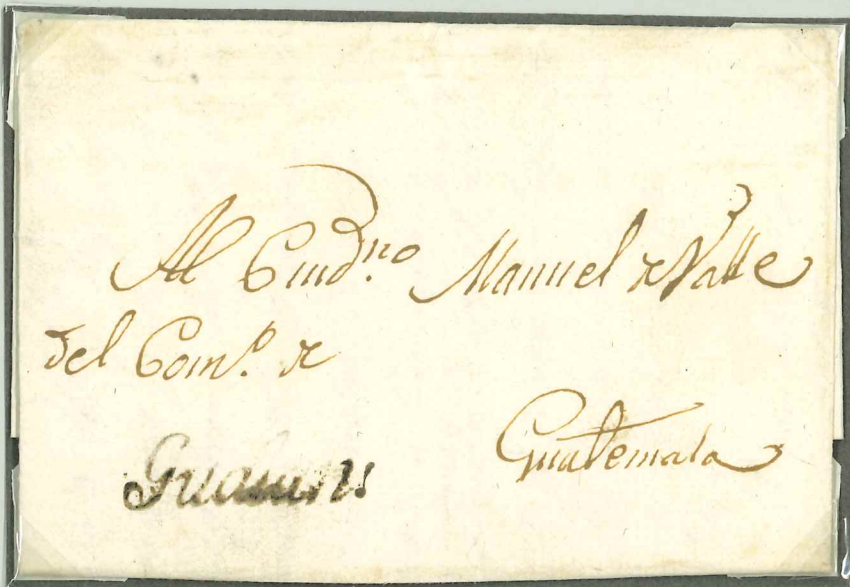 Al Ciudno. Manuel de Valle
del Como. de
Guatemala